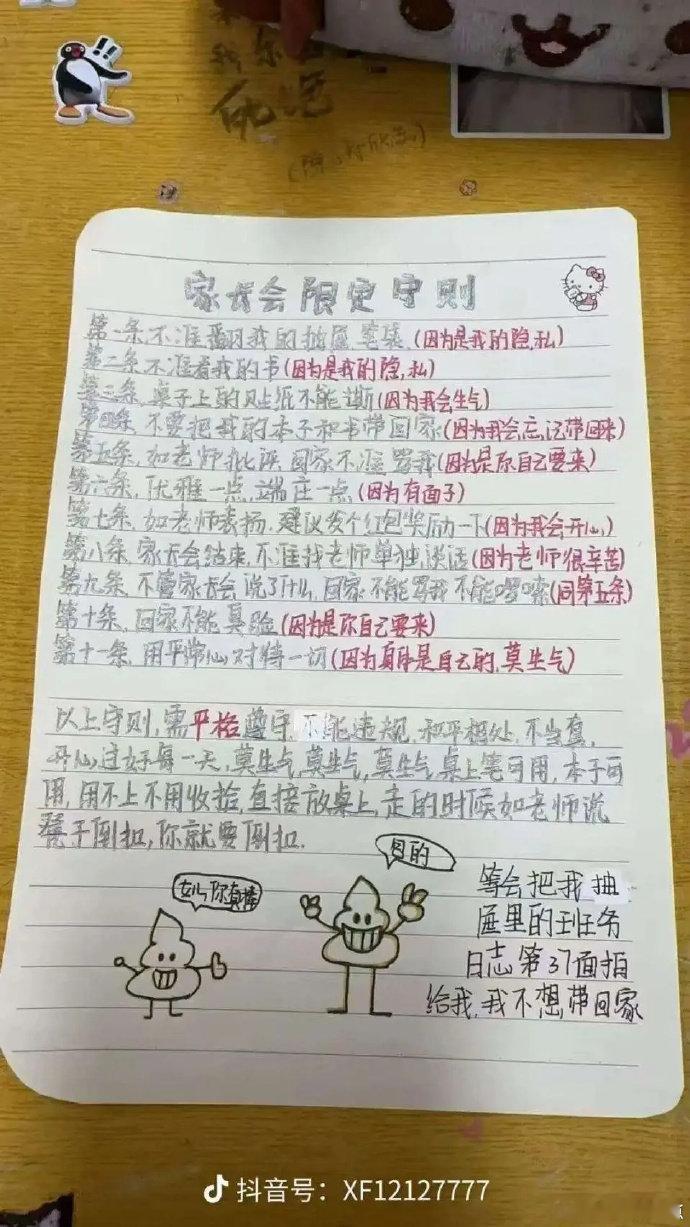 我
家长会限定守则
第一条,不准翻我的抽屉笔袋(因为是我的隐,私)
第二条,不准看我的书(因为是我的隐,私)
第三条,桌子上的贴纸不能撕(因为我会生气)
第四条,不要把我的本子和书带回家(因为我会忘记带回来)
第五条,如老师批评,回家不准骂我(因为是你自己要来)
第六条,优雅一点,端庄一点(因为有面子)
第七条,如老师表扬,建议发个红包奖励一下(因为我会开心)
第八条,家长会结束,不准找老师单独谈话(因为老师很辛苦)
第九条,不管家长会说了什么,回家不能骂我不能啰嗦(同第五条)
第十条,回家不能臭脸(因为是你自己要来)
第十一条,用平常心对待一切(因为身体是自己的,莫生气)
以上守则,需严格遵守,不能违规,和平相处,不当真,
开心过好每一天,莫生气,莫生气,莫生气,桌上笔可用,本子可
用,用不上不用收拾,直接放桌上,走的时候如老师说
凳子倒扣,你就要倒扣.
女儿你真棒
是的
等会把我抽
屉里的班任务
日志第37面拍
给我,我不想带回家
抖音号：XF12127777